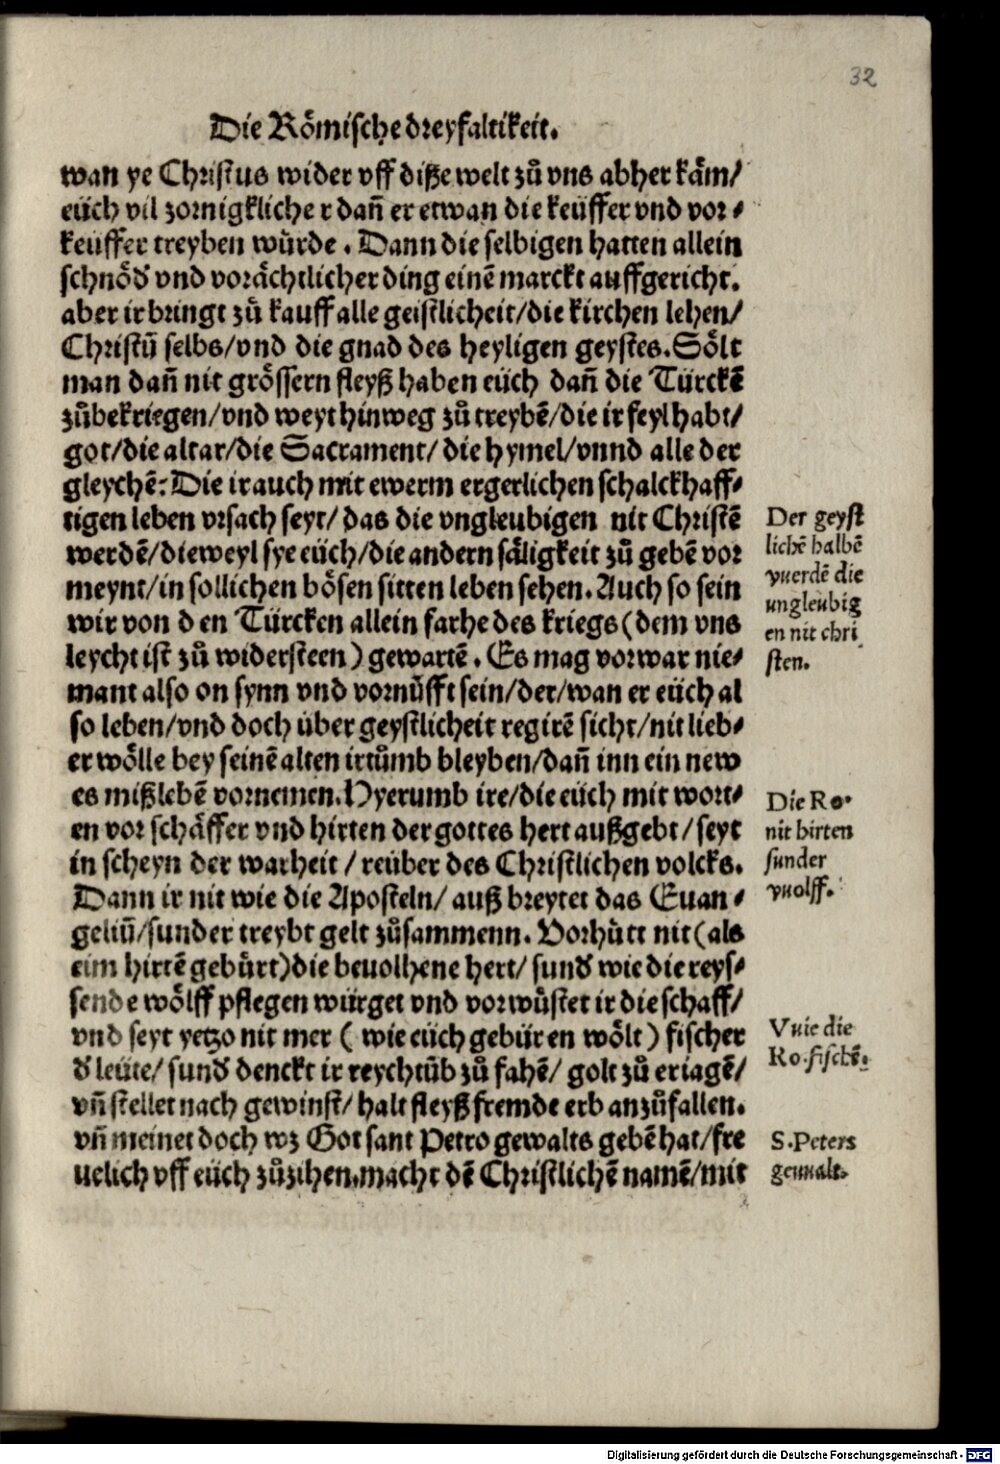 32
Die Rőmische dreyfaltikeit.
wan ye Christus wider vff diße welt zů vns abher kåm/
eüch vil zornigkliche r dañ er etwan die keüffer vnd vor⸗
keuffer treyben wůrde. Dann die selbigen hatten allein
schnöd vnd vorächtlicher ding einē marckt auffgericht.
aber ir bringt zů kauff alle geistlicheit/die kirchen lehen/
Christū selbs/vnd die gnad des heyligen geystes. Sölt
man dañ nit grössern fleyß haben eüch dañ die Türckē
zůbekriegen/vnd weyt hinweg zů treybē/die ir feyl habt/
got/die altar/die Sacrament/die hymel/vnnd alle der
gleychē: Die ir auch mit ewerm ergerlichen schalckhaff⸗
tigen leben vrsach seyt/das die vngleubigen nit Christē
werdē/dieweyl sye eüch/die andern säligkeit zů gebē vor
meynt/in sollichen bösen sitten leben sehen. Auch so sein
wir von d en Türcken allein farhe des kriegs (dem vns
leycht ist zů widersteen) gewartē. Es mag vorwar nie⸗
mant also on synn vnd vornůfft sein/der/wan er eüch al
so leben/vnd doch über geystlicheit regirē sicht/nit lieb⸗
er wölle bey seinē alten irtůmb bleyben/dañ inn ein new
es mißlebē vornemen. Hyerumb ire/die eüch mit wort⸗
en vor schäffer vnd hirten der gottes hert außgebt/seyt
in scheyn der warheit/reüber des Christlichen volcks.
Dann ir nit wie die Aposteln/auß breytet das Euan⸗
geliū/sunder treybt gelt zůsammenn. Vorhůtt nit (als
eim hirtē gebůrt) die beuolhene hert/sund wie die reys⸗
sende wölff pflegen würget vnd vorwůstet ir die schaff/
vnd seyt yetzo nit mer (wie eüch gebüren wölt) fischer
d leüte/sund denckt ir reychtüb zů fahē/golt zů eriagē/
vñ stellet nach gewinst/halt fleyß fremde erb anzůfallen.
vñ meinet doch wz Got sant Petro gewalts gebē hat/fre
uelich vff eüch zůzihen. macht dē Christlichē namē/mit
Der geyst
lichē halbē
vuerdē die
ungleubig
en nit chri
sten.
Die Ro.
nit hirten
sunder
vuolff.
Vuie die
Ro. fischē.
S. Peters
gevualt.
Digitalisierung gefördert durch die Deutsche Forschungsgemeinschaft - DFG